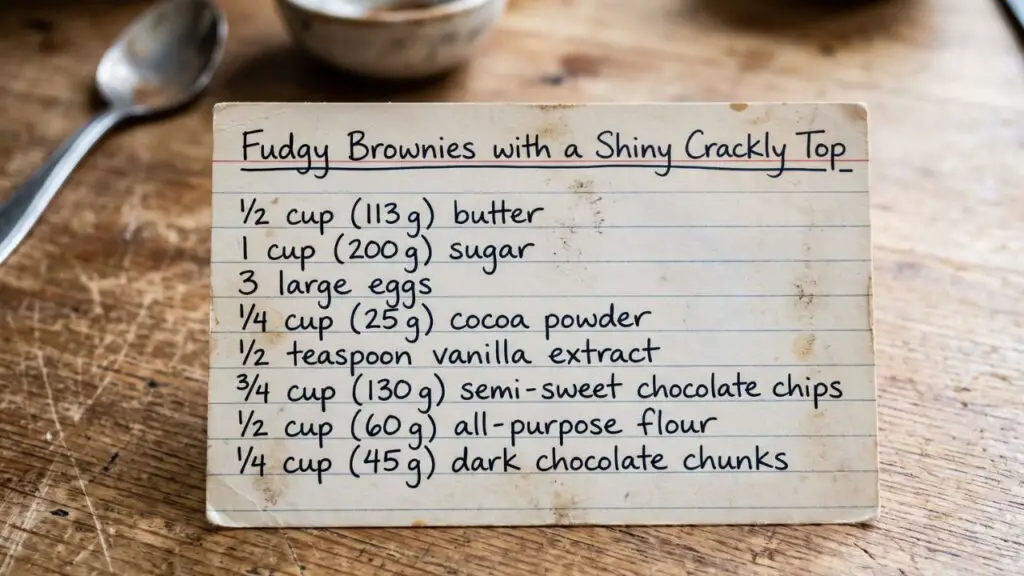 Fudgy Brownies with a Shiny Crackly Top
½ cup (113 g) butter
1 cup (200 g) sugar
3 large eggs
¼ cup (25 g) cocoa powder
½ teaspoon vanilla extract
¾ cup (130 g) semi-sweet chocolate chips
½ cup (60 g) all-purpose flour
¼ cup (45 g) dark chocolate chunks